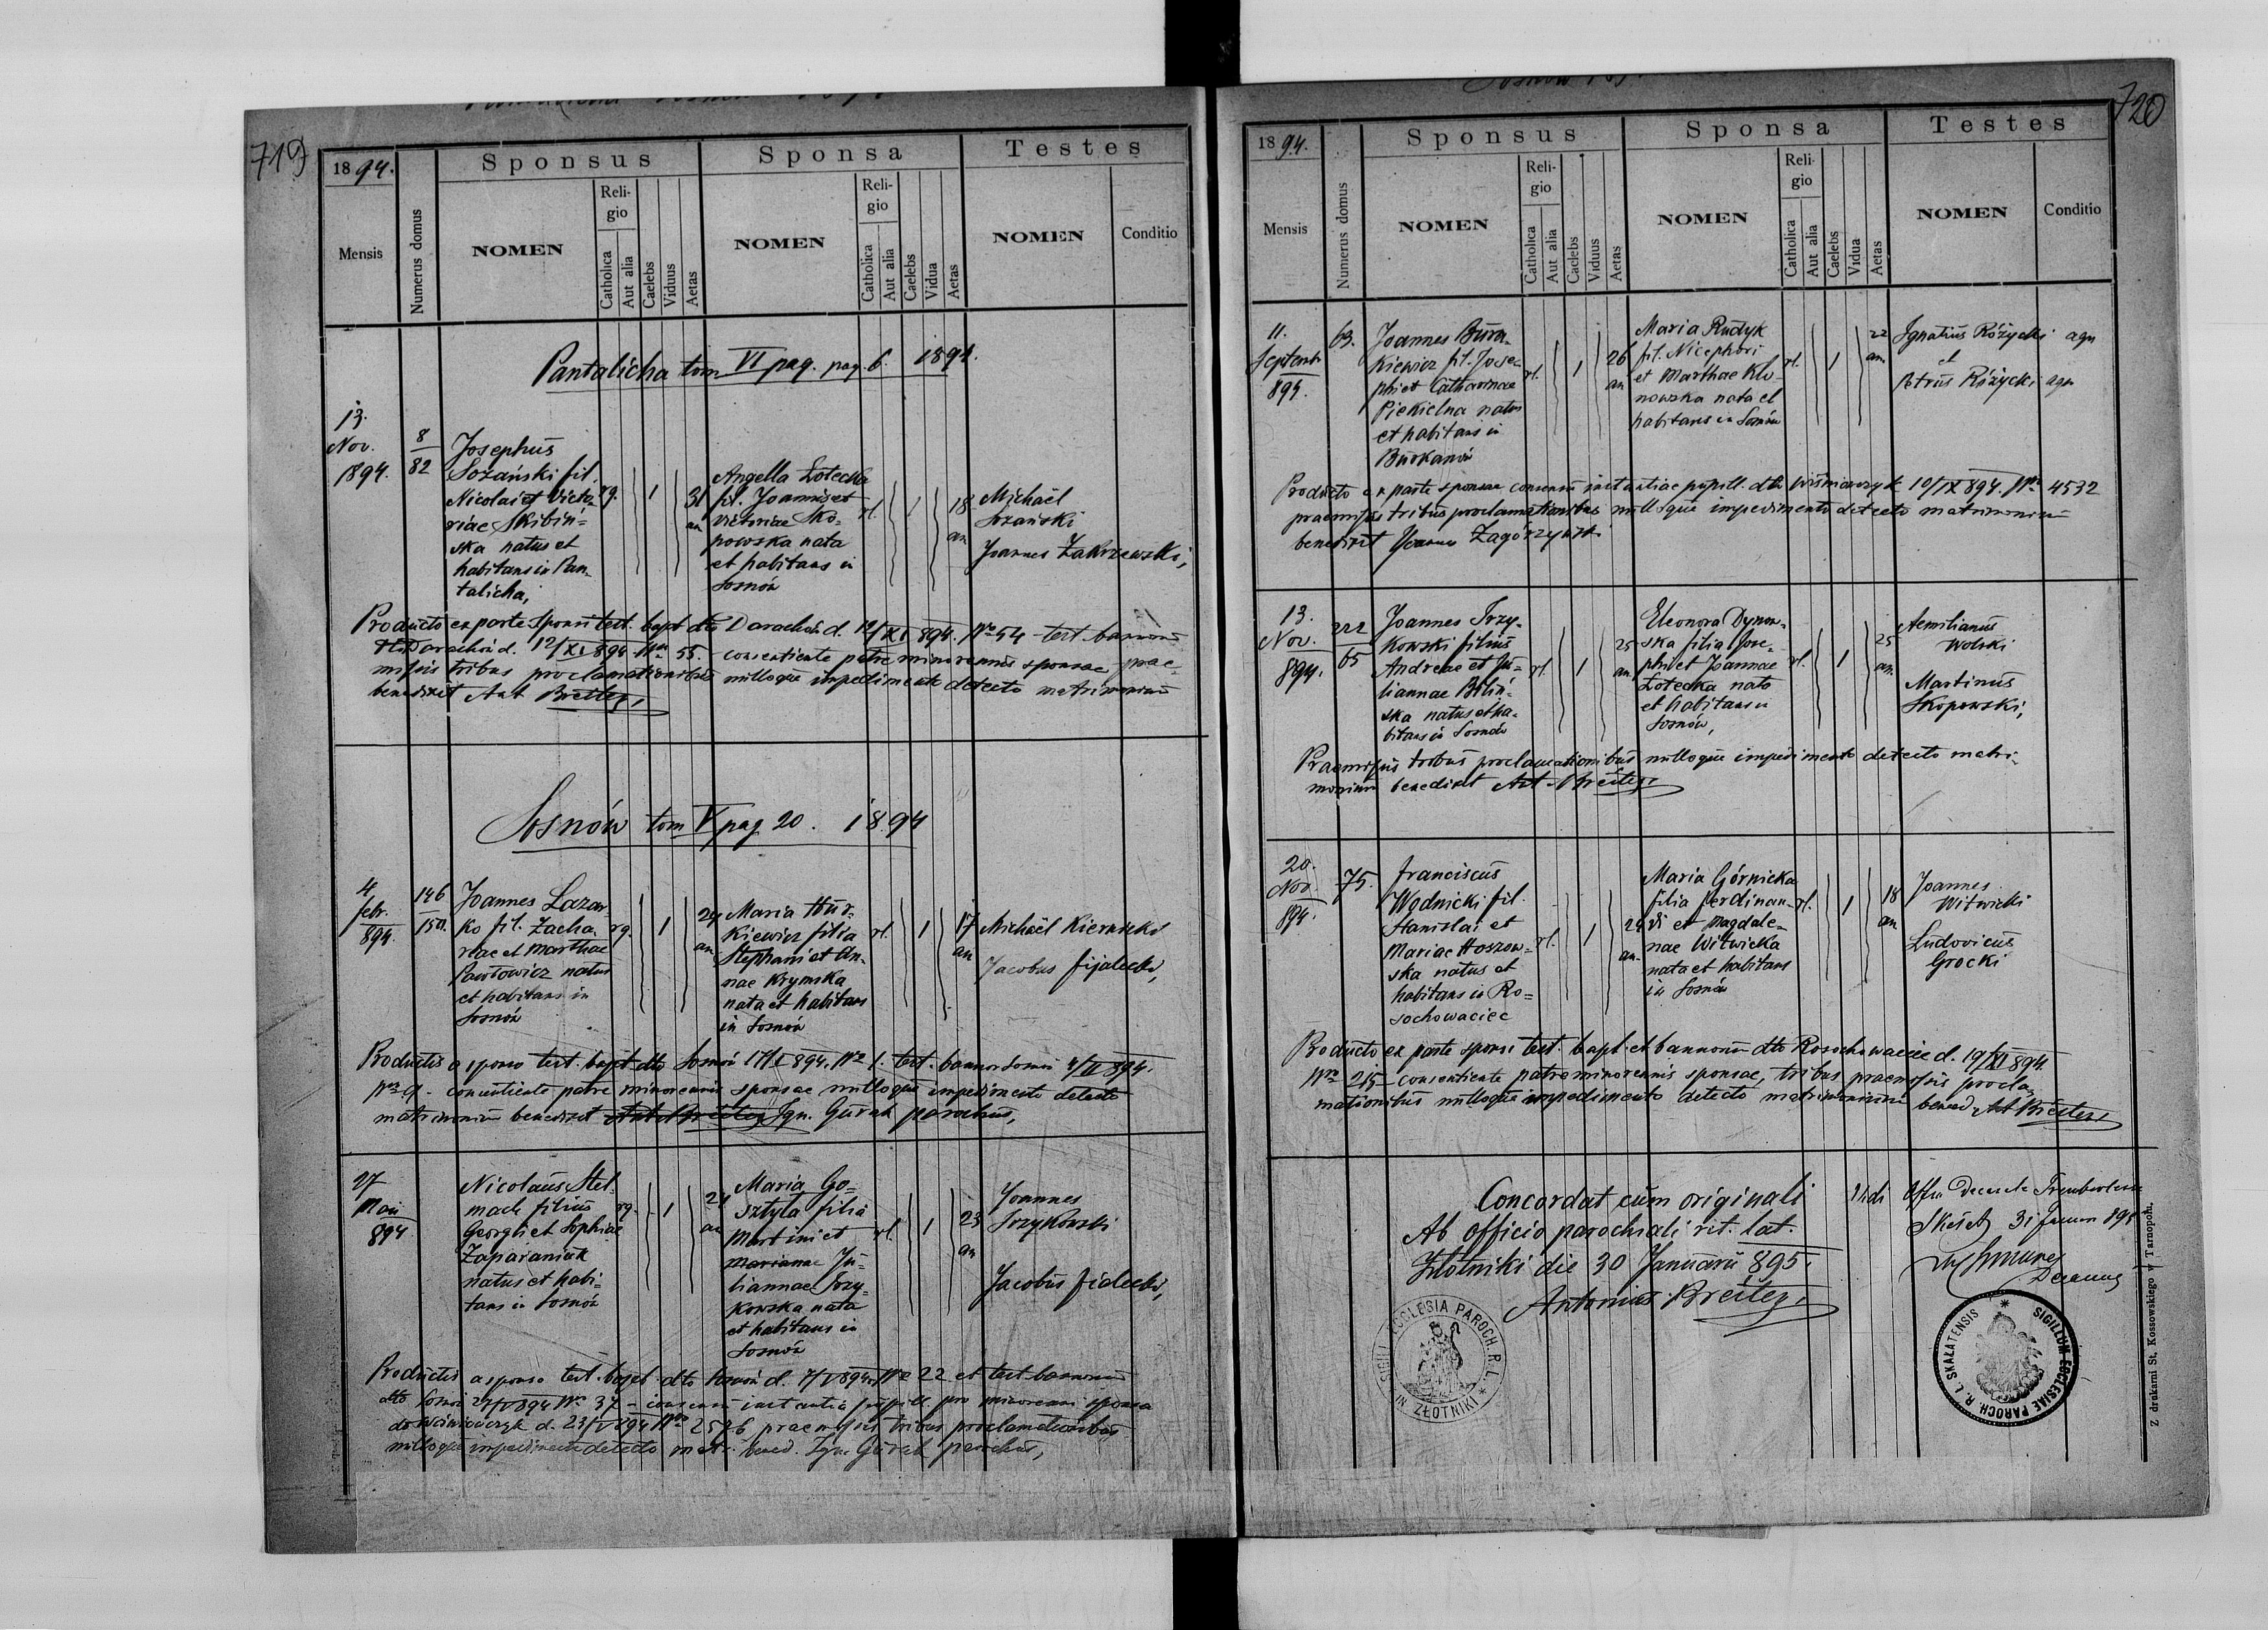 719
1894.
Sponsus
Sponsa
Testes
Mensis
Numerus domus
NOMEN
Religio
Catholica
Aut alia
Caelebs
Viduus
Aetas
NOMEN
Religio
Catholica
Aut alia
Caelebs
Vidua
Aetas
NOMEN
Conditio
Pantalicha tom VI pag. pag. 6. 1894.
13.
Nov.
1894.
8
82
Josephus
Sozański fil.
Nicolai et Victo-
riae Skibiń-
ska natus et
habitans in Pan-
talicha,
rg.
1
31
an
Angella Łotecka
fil. Joannis et
Victoriae Sko-
powska nata
et habitans in
Sosnów
rl.
1
18
an
Michaël
Sozański
Joannes Zakrzewski,
Producto ex parte sponsi test. bapt. dto Darachów d. 12/XI 894. Nro 54 test. bannorum
dto Darachów d. 12/XI 894 Nro 55. consentiente patre minorennis sponsae prae-
missis tribus proclamationibus nulloque impedimento detecto matrimonium
benedixit Ant Breiter,
Sosnów tom V pag 20. 1894
4
febr.
894.
146
150.
Joannes Lazar-
ko fil. Zacha-
riae et Marthae
Pawłowicz natus
et habitans in
Sosnów
rg.
1
24
an
Maria Hur-
kiewicz filia
Stephani et An-
nae Krymska
nata et habitans
in Sosnów
rl.
1
17
an
Michaël Kiernicki
Jacobus Fijalecki,
Productis a sponso test. bapt. dto Sosnów 17/I 894. Nro 1. test. bannor Sosnów 4/II 894.
Nro 9. consentiente patre minorennis sponsae nulloque impedimento detecto
matrimonium benedixit Ant Breiter Ign. Gurak parochus,
27
Maii
894
Nicolaus Stel-
mach filius
Georgii et Sophiae
Zaparaniuk
natus et habi-
tans in Sosnów
rg.
1
24
an
Maria Go-
sztyła filia
Martini et
Marianae Ju-
liannae Trzy-
kowska nata
et habitans in
Sosnów
rl.
1
23
an
Joannes
Trzykowski
Jacobus Fialecki,
Productis a sponso test. bapt. dto Sosnów d. 7/V 894 Nro 22 et test. bannorum
dto Sosnów 27/V 894 Nro 37 consensu instantia pupill. pro minorenni sponsa
do Wiśniowczyk d. 23/V 894 Nro 2576 praemissis tribus proclamationibus
nulloque impedimento detecto matr. bened. Ign. Gurak parochus,
720
1894.
Sponsus
Sponsa
Testes
Mensis
Numerus domus
NOMEN
Religio
Catholica
Aut alia
Caelebs
Viduus
Aetas
NOMEN
Religio
Catholica
Aut alia
Caelebs
Vidua
Aetas
NOMEN
Conditio
11.
Septemb
894.
63.
Joannes Bura-
kiewicz fil. Jose-
phi et Catharinae
Piekielna natus
et habitans in
Burkanów
rl.
1
26
an
Maria Rudyk
fil. Nicephori
et Marthae Kli-
nowska nata et
habitans in Sosnów
rl.
1
22
an
Ignatius Różycki agn
et
Petrus Różycki agn
Producto ex parte sponsae consensu instantiae pupill. dto Wiśniowczyk 10/IX 894. Nro 4532
praemissis tribus proclamationibus nulloque impedimento detecto matrimonium
benedixit Joannes Zagórzyński
13.
Nov.
894.
222
65
Joannes Trzy-
kowski filius
Andreae et Ju-
liannae Biliń-
ska natus et ha-
bitans in Sosnów
rl.
1
25
an
Eleonora Dynow-
ska filia Jose-
phi et Joannae
Łotecka nata
et habitans in
Sosnów,
rl.
1
25
an.
Aemilianus
Wolski
Martinus
Skopowski,
Praemissis tribus proclamationibus nulloque impedimento detecto matri-
monium benedixit Ant Breiter,
20.
Nov.
894.
75.
Franciscus
Wodnicki fil.
Stanislai et
Mariae Hoszow-
ska natus et
habitans in Ro-
sochowaciec
rl.
1
24
an.
Maria Górnicka
filia Ferdinan-
di et Magdale-
nae Witwicka
nata et habitans
in Sosnów
rl.
1
18
an
Joannes
Witwicki
Ludovicus
Grocki
Producto ex parte sponsi test. bapt. et bannorum dto Rosochowaciec d. 19/XI 894.
Nro 215 consentiente patre minorennis sponsae, tribus praemissis procla-
mationibus nulloque impedimento detecto matrimonium bened. Ant Breiter,
Concordat cum originali
Ab officio parochiali rit. lat.
Złotniki die 30 Januarii 895.
Antonius Breiter,
Vidi
Skałat 31 Januar 895
Decanus
SIGILL. ECCLESIA PAROCH. R. L. * IN ZŁOTNIKI
SIGILLUM ECCLESIAE PAROCH. R. L. SKAŁATENSIS *
Z drukarni St. Kossowskiego w Tarnopolu.